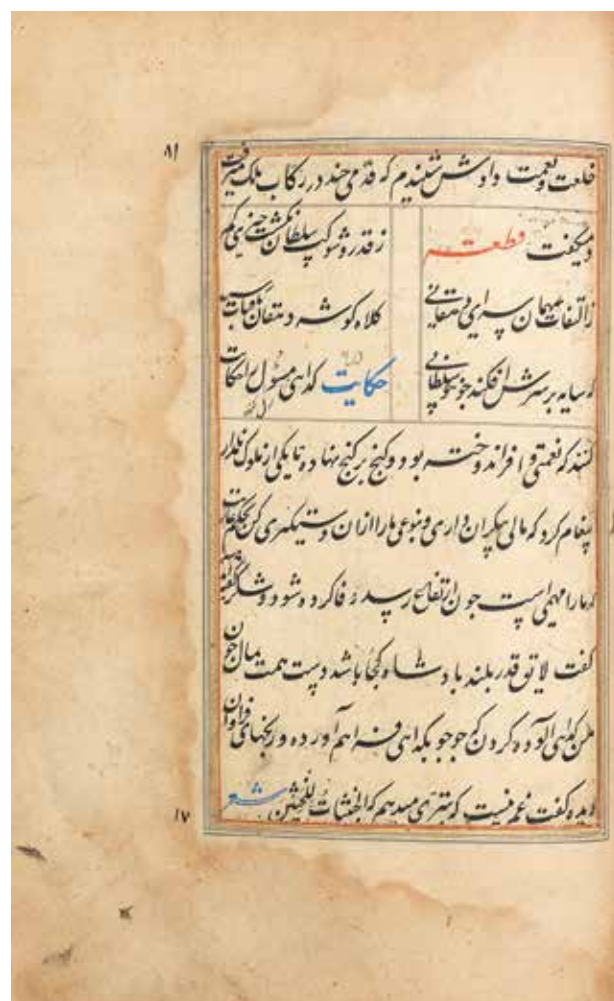 ۸۱
خلعت و نعمت دادش شنیدم که قدمی چند در رکاب ملک میرفت
و میگفت قطعه ز قدر و شوکت سلطان نکشت چیزی کم
ز التفات بمهمان سرای دهقانی کلاه کوشه دهقان بافتاب رسید
که سایه بر سرش افکند چو تو سلطانی حکایت کدای مسؤل را حکایت
کنند که نعمتی وافر اندوخته بود و کنج بر کنج نهاده تا یکی از ملوک نامدار
پیغام کرد که مالی بیکران داری و بنوعی مارا ازان دستیکیری کن بحکم عاریت
که مارا مهمی است چون ارتفاع رسد وفا کرده شود و شکر گفته
کفت لایق قدر بلند بادشاه کجا باشد دست همت بمال چون
من کدای آلوده کردن که جو جو بکدای فراهم آورده و رنجهای فراوان
دیده کفت غم نیست که بتتری میدهم که الخبیثات للخبیثین شعر
۱۷